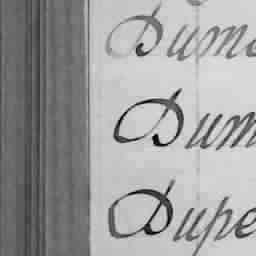 Dum
Dum
Dupe